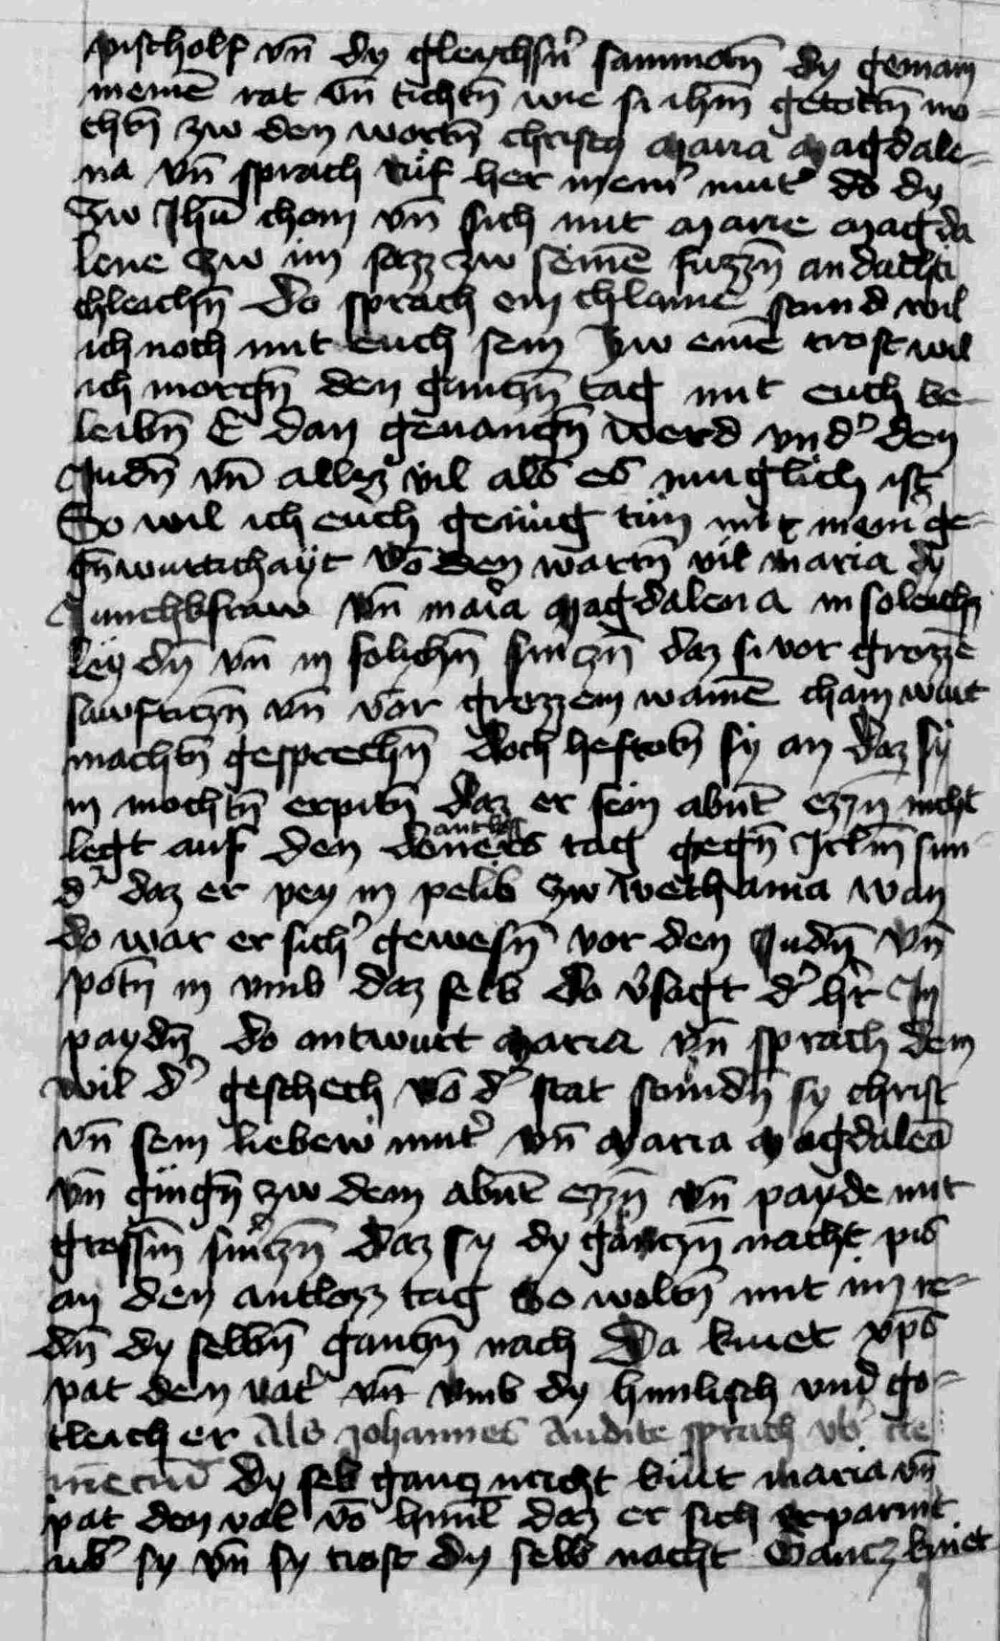 pischolf vn̄ dy gleychsn̄ sammotn̄ dy gemain
meinē rat vn̄ tichtn̄ wie si ihm̄ getottn̄ mo-
chtn̄ zw den wortn̄ christy maria magdale-
na vn̄ sprach ruf her mein̉ mut̉ do dy
Zw Jhū chom vn̄ sich mit marie magda
lene zw im sazz zw seinē fuzzn̄ andachti
chleichn̄ Do sprach ein chlainē stund wil
ich noch mit euch sein zw einē trost wil
ich morgn̄ den ganczn̄ tag mit euch be-
leibn̄ E dan geuangn̄ werd vnd̉ den
Judn̄ vn̄ allez vil als es muglich ist
So wil ich euch genug tun mit mein̉ ge-
gn̄wurtichayt vō den wartn̄ vil maria dy
Junchkfraw vn̄ maria magdalena in soleichn̄
leydn̄ vn̄ in solichn̄ smczn̄ daz si vor grozzē
sawftczn̄ vn̄ vor grozzem wainē cham wart
machtn̄ gesprechn̄ Doch heftotn̄ sy an daz sy
in mochtn̄ erpitn̄ daz er sein abnt ezzn̄ nicht
legt auf den antlas tag gegn̄ Jrlm̄ sun
d̉ daz er pey in pelib zw wethania wan
do war er sich̉ gewesn̄ vor den Judn̄ vn̄
potn̄ in vmb daz selb do v̉sagt d̉ hr̄ In
paydn̄ do antwurt maria vn̄ sprach dein
wil d̉ geschech vō d̉ stat stundn̄ sy christ
vn̄ sein liebew mut̉ vn̄ maria magdalēa
vn̄ gingn̄ zw dem abnt ezzn̄ vn̄ payde mit
grossm̄ smczn̄ daz sy dy ganczn̄ nacht pis
an den antlozz tag So woltn̄ mit im re-
dn̄ dy selbn̄ ganczn̄ nach Da kniet xps̄
pat den vat̉ vn̄ vmb dy himlisch vnd go-
tleich er Als johannes Audite sprach
dy selb gancz nacht knit maria vn̄
pat den vat̉ vō himl daz er sich erparmt
ub̉ sy vn̄ sy trost dy selb nacht Gancz kniet